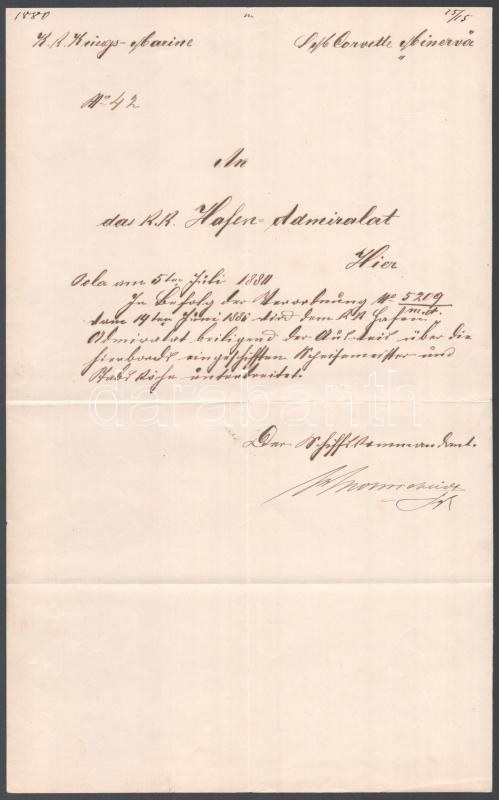 1880 15/15
K. K. Kriegs-Marine S.M. Corvette Minerva
No 42
An
das K. K. Hafen-Admiralat
Hier
Pola am 5ten Juli 1880
In Befolg der Verordnung No 5209/M.A.
vom 14ten Juni 1880 wird dem K K Hafen
Admiralat beiliegend der Ausweis über die
hierbords eingeschifften Speisemeister und
Stabsköche unterbreitet.
Der Schiffskommandant.
darabanth